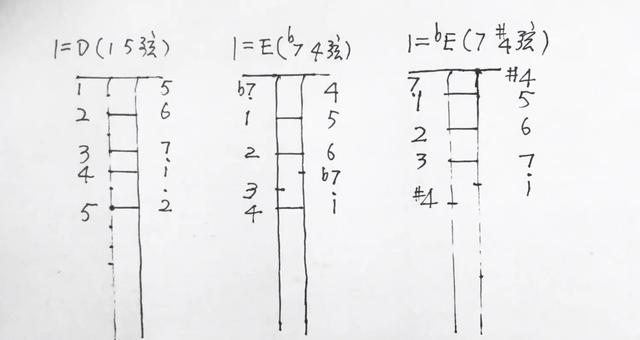 1=D(1 5弦)
1 5
2 6
3 7
4 i
5 2̇
1=E(ᵇ7 4弦)
b7 4
1 5
2 6
b7
3
4 i
1=ᵇE(7 #4弦)
7 #4
1 5
2 6
3 7
#4 i